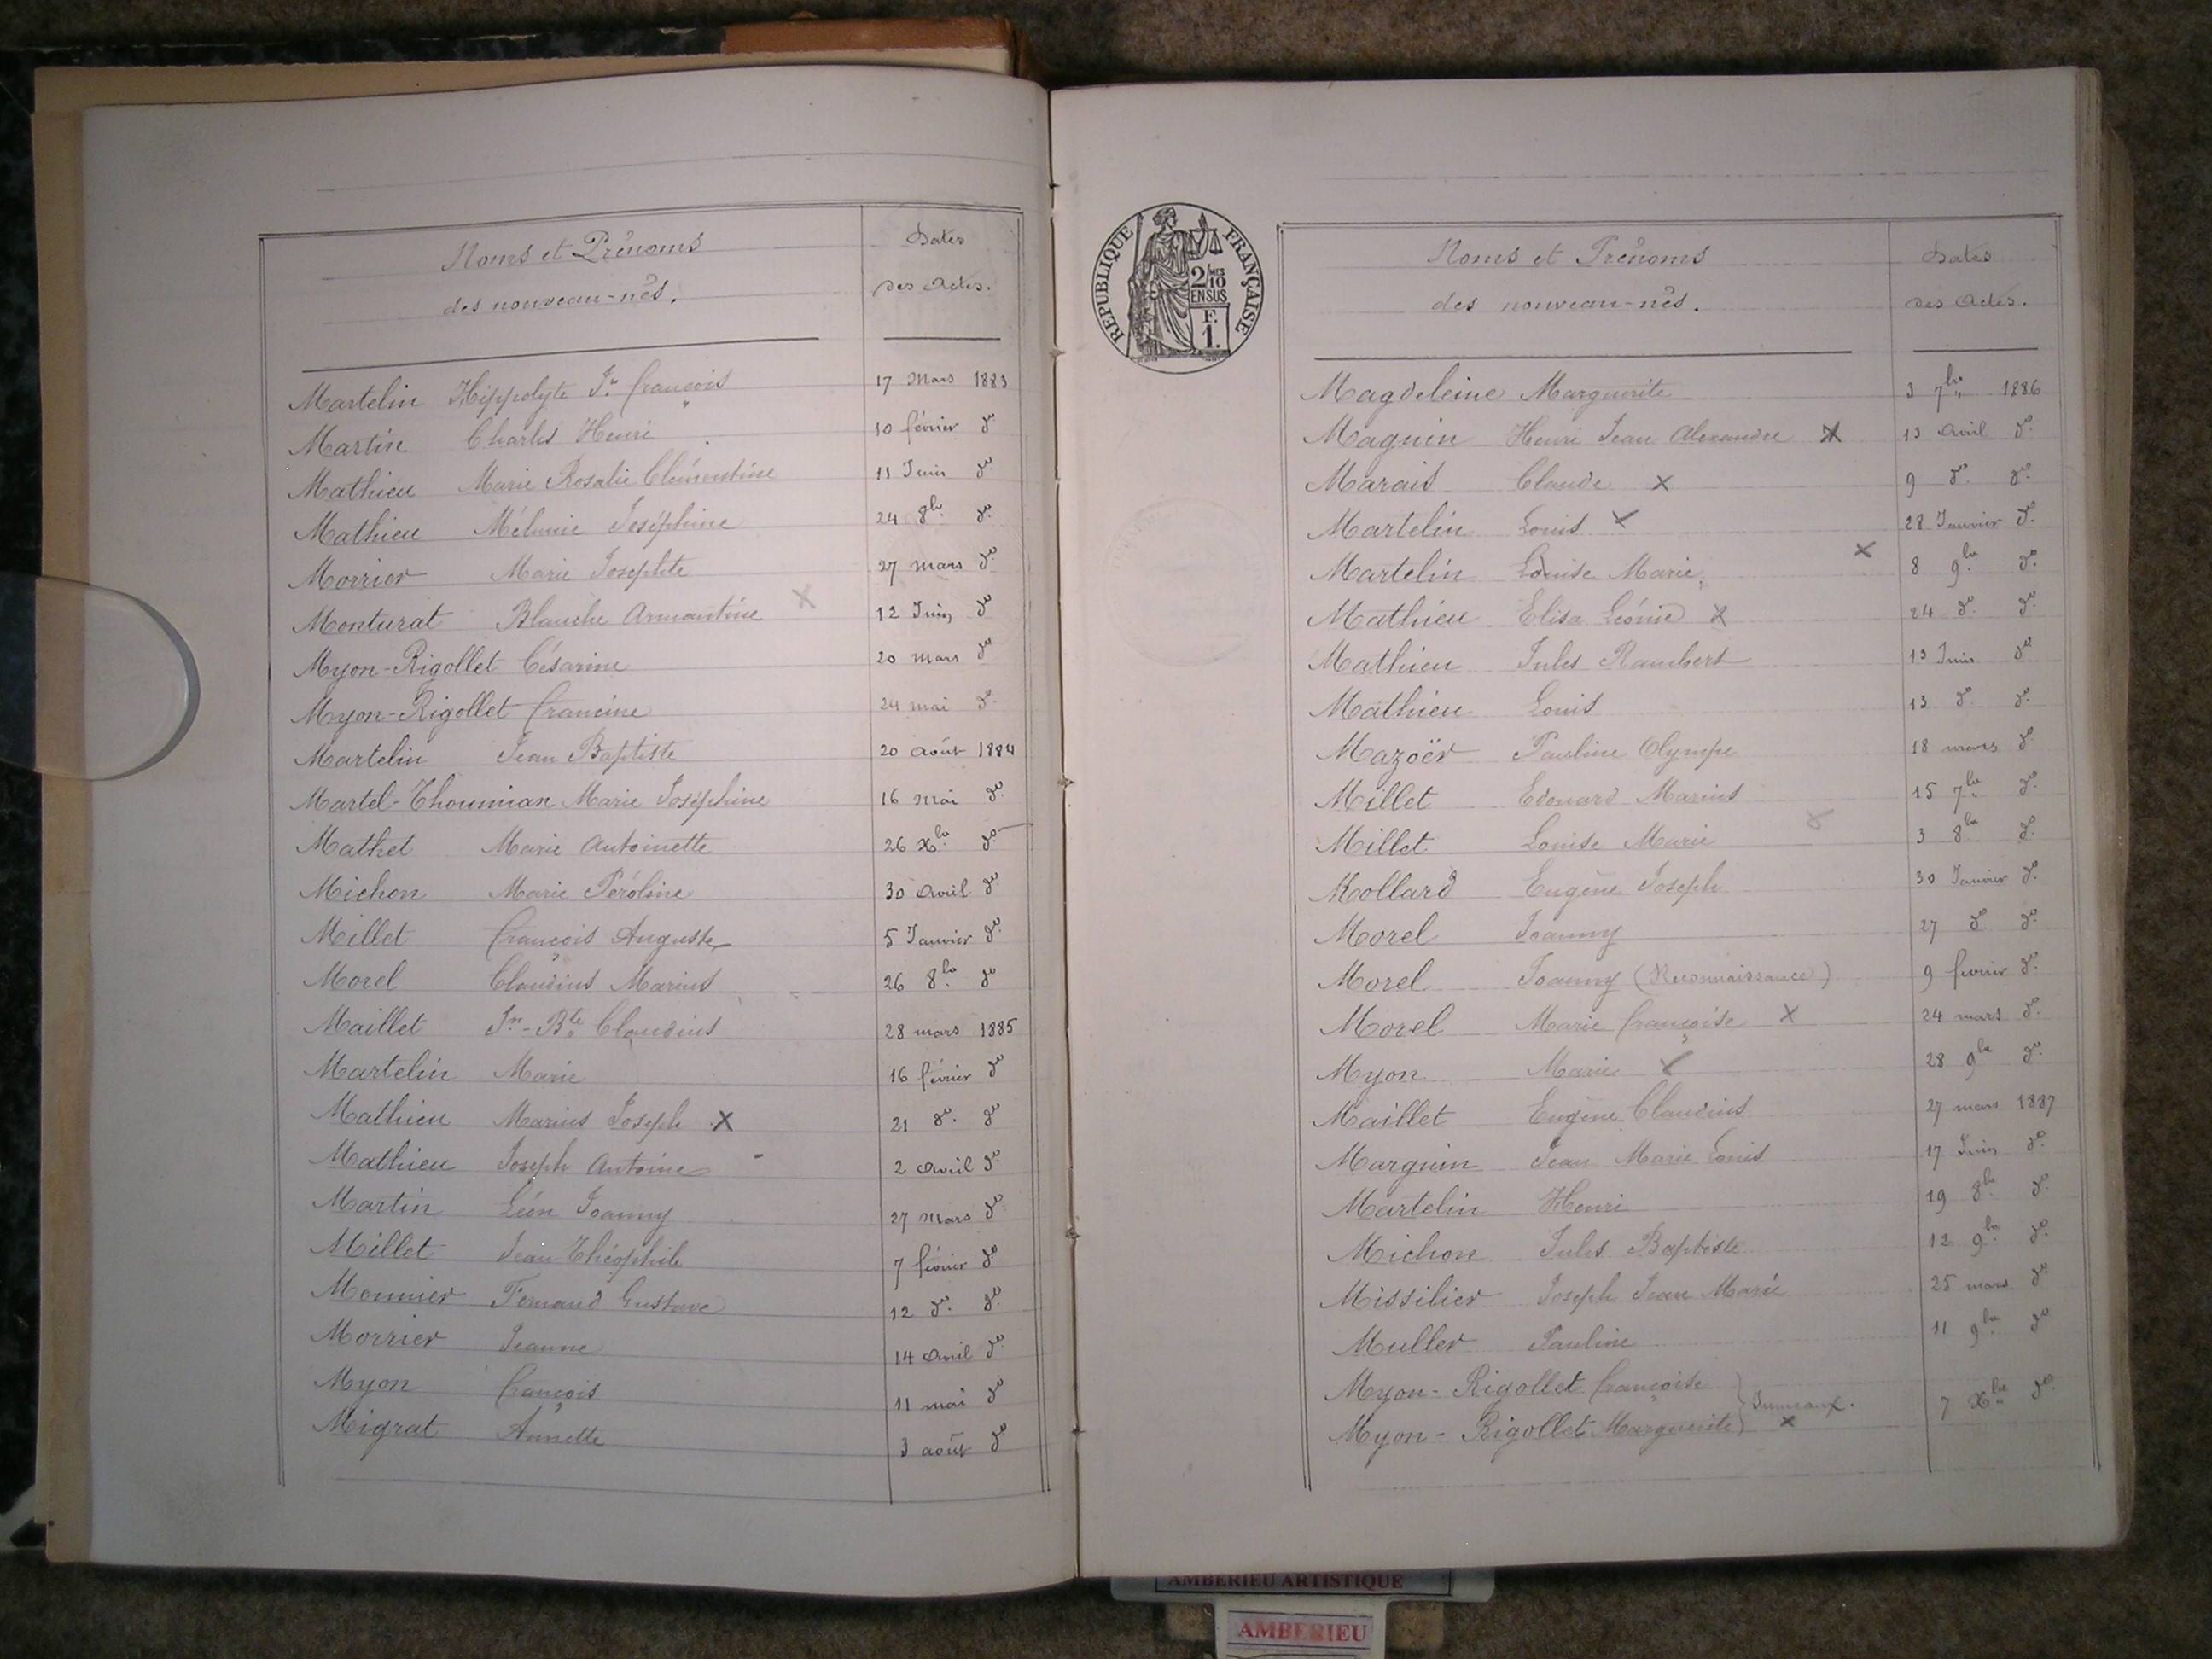 Noms et Prénoms
des nouveau-nés.
Dates
des Actes.
Martelin Hippolyte Jn François 17 Mars 1883
Martin Charles Henri 10 février do
Mathieu Marie Rosalie Clémentine 11 Juin do
Mathieu Mélanie Joséphine 24 8bre do
Morrier Marie Josephte 27 mars do
Monturat Blanche Armantine x 12 Juin do
Myon-Rigollet Césarine 20 mars do
Myon-Rigollet Francine 24 mai do
Martelin Jean Baptiste 20 août 1884
Martel-Thoumian Marie Joséphine 16 mai do
Mathet Marie Antoinette 26 Xbre do
Michon Marie Péroline 30 avril do
Millet François Auguste 5 Janvier do
Morel Claudius Marius 26 8bre do
Maillet Jn-Bte Claudius 28 mars 1885
Martelin Marie 16 février do
Mathieu Marius Joseph x 21 do do
Mathieu Joseph Antoine 2 avril do
Martin Léon Joanny 27 mars do
Millet Jean Théophile 7 février do
Monnier Fernand Gustave 12 do do
Morrier Jeanne 14 avril do
Myon François 11 mai do
Migrat Annette 3 août do
REPUBLIQUE FRANÇAISE
2/10 MES
EN SUS
F.
1.
Noms et Prénoms
des nouveau-nés.
Dates
des Actes.
Magdeleine Marguerite 3 7bre 1886
Maguin Henri Jean Alexandre x 13 avril do
Marais Claude x 9 do do
Martelin Louis x 28 Janvier do
Martelin Louise Marie x 8 9bre do
Mathieu Elisa Léonie x 24 do do
Mathieu Jules Rambert 13 Juin do
Mathieu Louis 13 do do
Mazoër Pauline Olympe 18 mars do
Millet Edouard Marius 15 7bre do
Millet Louise Marie x 3 8bre do
Mollard Eugène Joseph 30 Janvier do
Morel Joanny 27 do do
Morel Joanny (Reconnaissance) 9 février do
Morel Marie Françoise x 24 mars do
Myon Marie x 28 9bre do
Maillet Eugène Claudius 27 mars 1887
Marguin Jean Marie Louis 17 Juin do
Martelin Henri 19 8bre do
Michon Jules Baptiste 12 9bre do
Missilier Joseph Jean Marie 25 mars do
Muller Pauline 11 9bre do
Myon-Rigollet Françoise
Jumeaux. 7 Xbre do
Myon-Rigollet Marguerite x
AMBERIEU ARTISTIQUE
AMBERIEU